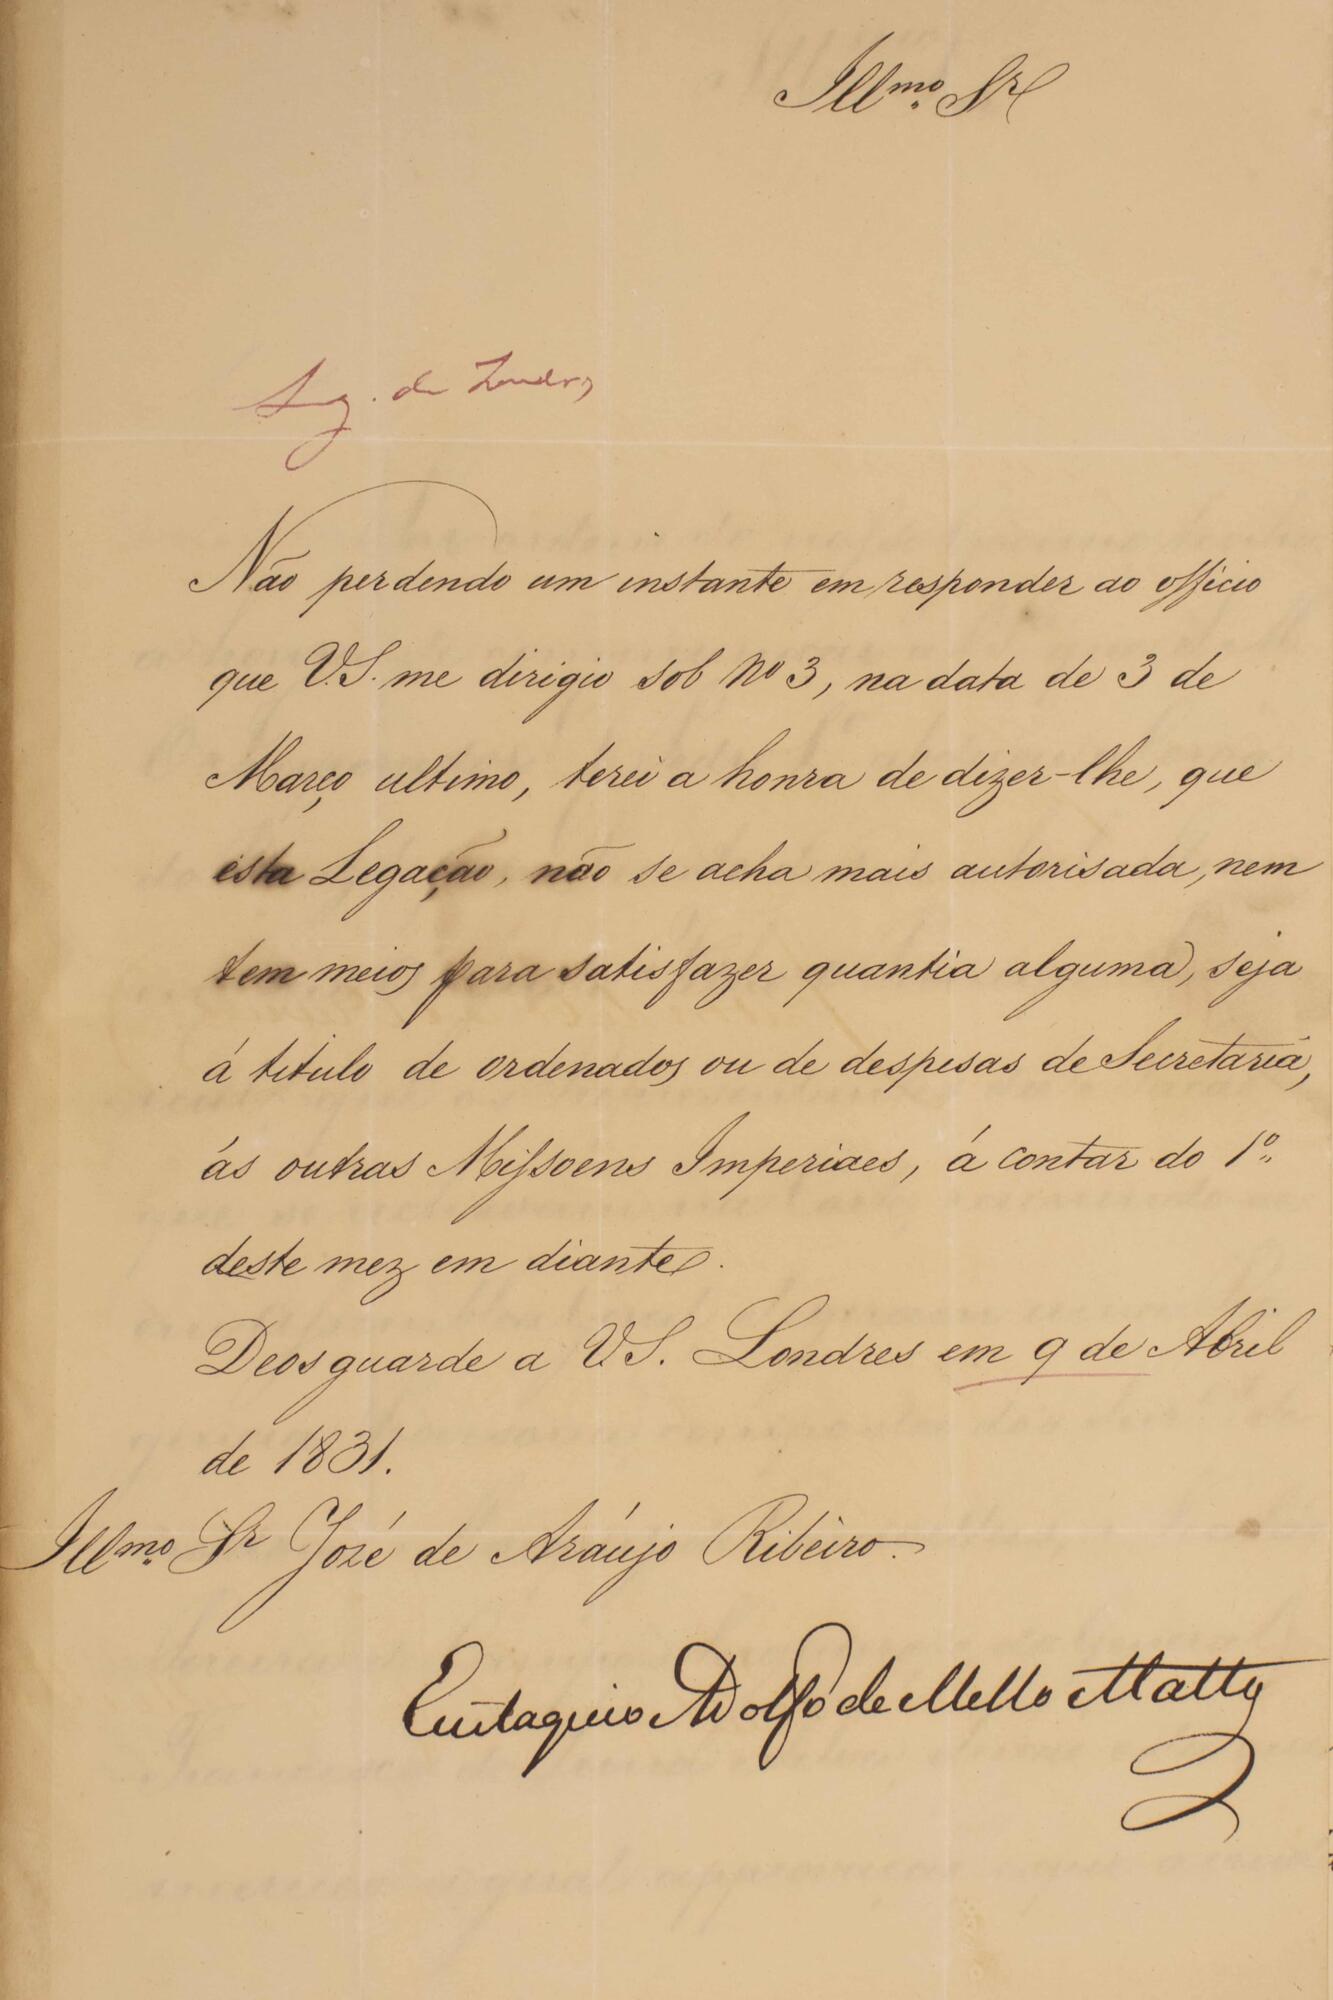 Illmo. Sr
Leg. de Londres
Não perdendo um instante em responder ao officio
que V.S. me dirigio sob No 3, na data de 3 de
Março ultimo, terei a honra de dizer-lhe, que
esta Legação, não se acha mais autorisada, nem
tem meios para satisfazer quantia alguma, seja
á titulo de ordenados ou de despesas de Secretaria,
ás outras Missoens Imperiaes, á contar do 1º
deste mez em diante.
Deos guarde a V.S. Londres em 9 de Abril
de 1831.
Illmo. Sr José de Aráujo Ribeiro.
Eustaquio Adolfo de Mello Mattos